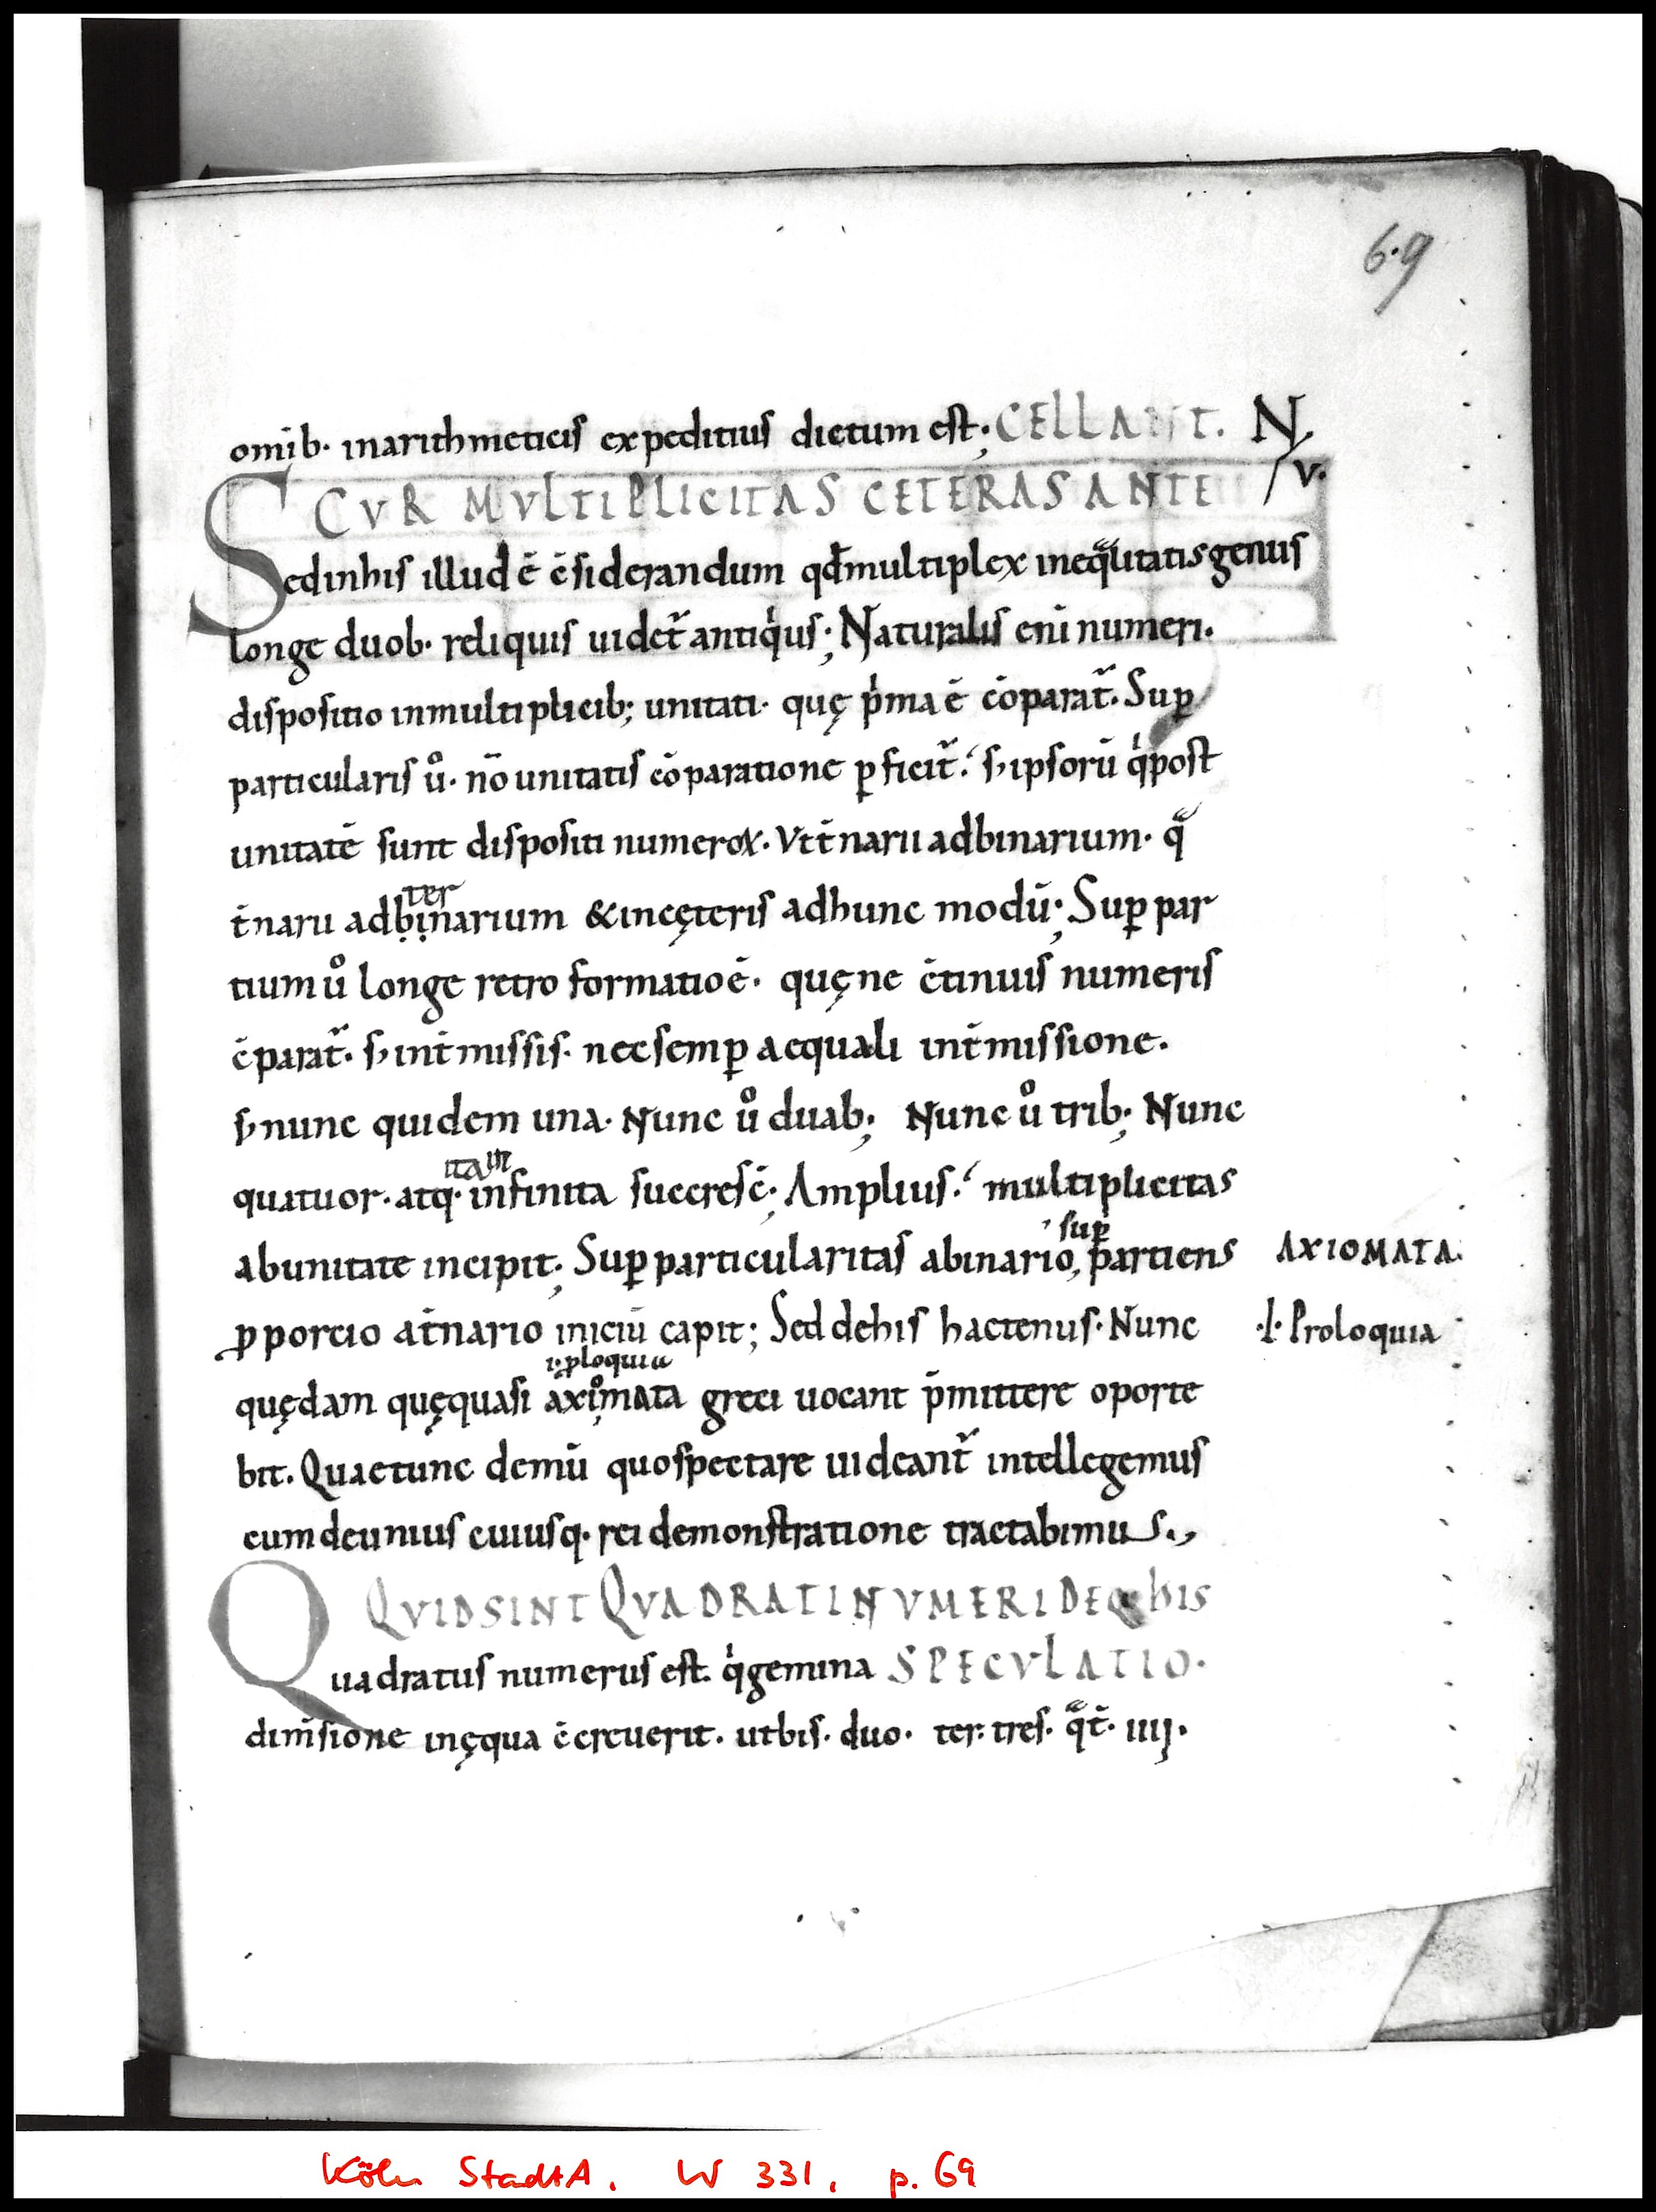 6·9
omīb· inarithmeticis expeditius dictum est; CELLANT. N
CVR MVLTIPLICITAS CETERAS ANTE / V.
Sedinhis illud ē c̄siderandum qd̄multiplex inequͣlitatisgenus
longe duob· reliquis uidet᷑ antiqͥus; Naturalis eni numeri.
dispositio inmultiplicib; unitati· quę pͥma ē cōparat᷑. Suꝑ
particularis uͦ· nō unitatis cōparatione ꝑficit᷑. s; ipsorū qͥpost
unitatē sunt dispositi numeroꝝ. Vtt̄narii adbinarium· qͣ
ter
t̄narii adbinarium &incęteris adhunc modū; Suꝑ par
tium uͦ longe retro formatio ē. quęne c̄tinuis numeris
c̄parat᷑. s; int̄missis· necsemꝑ aequali int̄missione.
s; nunc quidem una· Nunc uͦ duab; Nunc uͦ trib; Nunc
ita in
quatuor· atq· infinita succresc̄; Amplius. multiplicitas
suꝑ
abunitate incipit; Suꝑparticularitas abinario, partiens AXIOMATA.
ꝓportio at̄nario iniciū capit; Sed dehis hactenus· Nunc ·ł· Proloquia
i· ꝓloquia
quędam quęquasi axiomata greci uocant p̄mittere oporte
bit. Quaetunc demū quospectare uideant᷑ intellegemus
cumdeunius cuiusq· rei demonstratione tractabimus.,
QVIDSINT QVADRATI NVMERI DEQ·bis
Quadratus numerus est. qͥgemina SPECVLATIO·
dim̄sione inęqua c̄creuerit· utbis· duo· ter· tres· qͣt̄· iiij·
Köln StadtA. W 331, p. 69